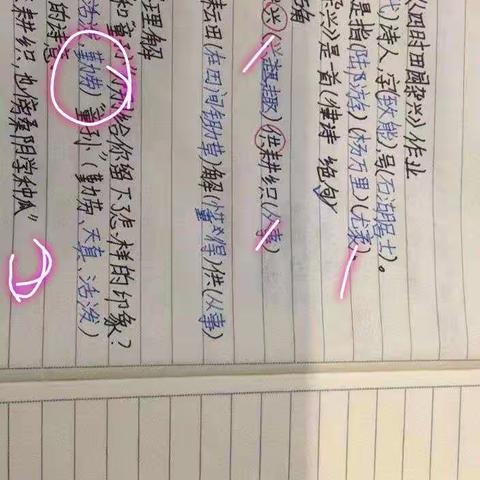 四时田园杂兴》作业
代)诗人,字(致能)号(石湖居士)。
是指(陆游)(杨万里)(尤袤)
杂兴》是一首(律诗 绝句)
兴)(兴趣)供耕织(从事)
耘田(在田间锄草)解(懂得)供(从事)
理解
和童孙 给你留下怎样的印象?
勤劳 "童孙"(勤劳、天真、活泼)
的诗句
耕织,也傍桑阴学种瓜"